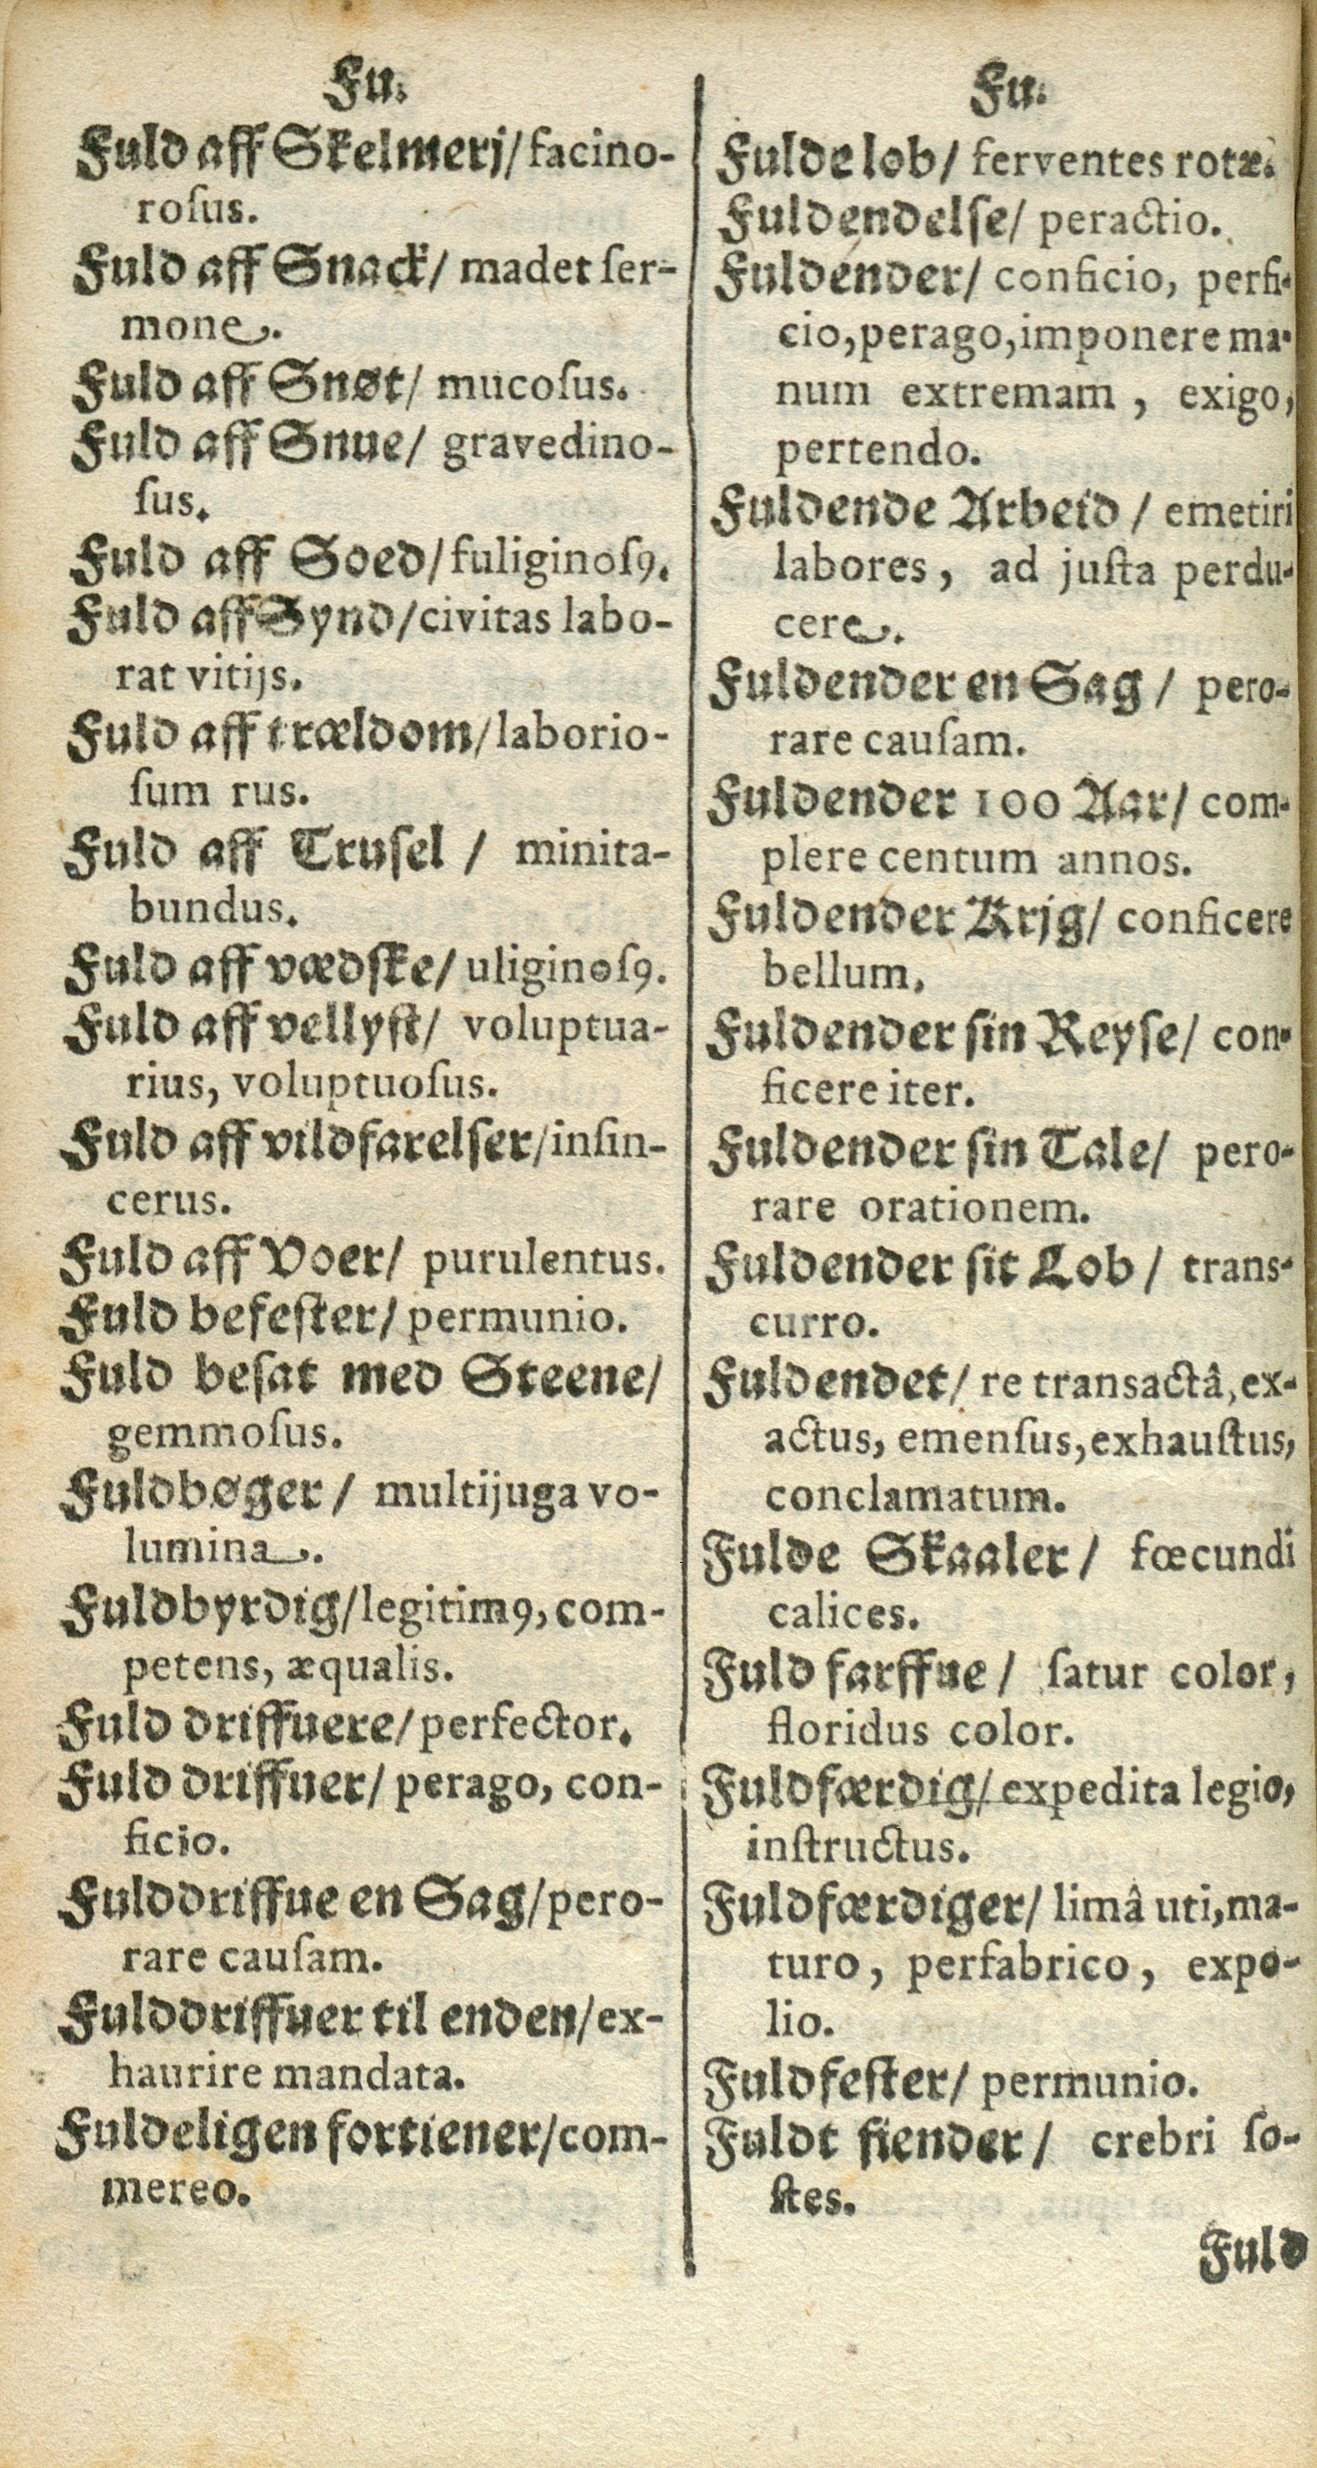 Fu.
Fuld aff Skelmerj/ facino-
roſus.
Fuld aff Snack/ madet ſer-
mone.
Fuld aff Snøt/ mucoſus.
Fuld aff Snue/ gravedino-
ſus.
Fuld aff Soed/ fuliginoſ9.
Fuld aff Synd/ civitas labo-
rat vitijs.
Fuld aff trældom/ laborio-
ſum rus.
Fuld aff Truſel / minita-
bundus.
Fuld aff vædſke/ uliginoſ9.
Fuld aff vellyſt/ voluptua-
rius, voluptuoſus.
Fuld aff vildfarelſer/ inſin-
cerus.
Fuld aff Voer/ purulentus.
Fuld befeſter/ permunio.
Fuld beſat med Steene/
gemmoſus.
Fuldbøger / multijuga vo-
lumina.
Fuldbyrdig/ legitim9, com-
petens, æqualis.
Fuld driffuere/ perfector.
Fuld driffuer/ perago, con-
ficio.
Fulddriffue en Sag/ pero-
rare cauſam.
Fulddriffuer til enden/ ex-
haurire mandata.
Fuldeligen fortiener/ com-
mereo.
Fu.
Fulde lob/ ferventes rotæ.
Fuldendelſe/ peractio.
Fuldender/ conficio, perfi-
cio, perago, imponere ma-
num extremam , exigo,
pertendo.
Fuldende Arbeid / emetiri
labores, ad juſta perdu-
cere.
Fuldender en Sag / pero-
rare cauſam.
Fuldender 100 Aar/ com-
plere centum annos.
Fuldender Krjg/ conficere
bellum.
Fuldender ſin Reyſe/ con-
ficere iter.
Fuldender ſin Tale/ pero-
rare orationem.
Fuldender ſit Lob / trans-
curro.
Fuldendet/ re transactâ, ex-
actus, emenſus, exhauſtus,
conclamatum.
Fulde Skaaler / fœcundi
calices.
Fuld farffue / ſatur color,
floridus color.
Fuldfærdig/ expedita legio,
inſtructus.
Fuldfærdiger/ limâ uti, ma-
turo, perfabrico, expo-
lio.
Fuldfeſter/ permunio.
Fuldt fiender / crebri ſo-
ſtes.
Fuld